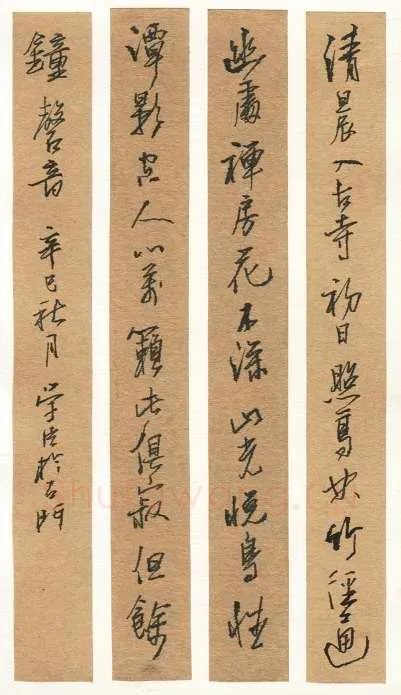 清晨入古寺初日照高林竹徑通
幽處禪房花木深山光悅鳥性
潭影空人心萬籟此俱寂但餘
鐘磬音 辛巳秋月 学於門